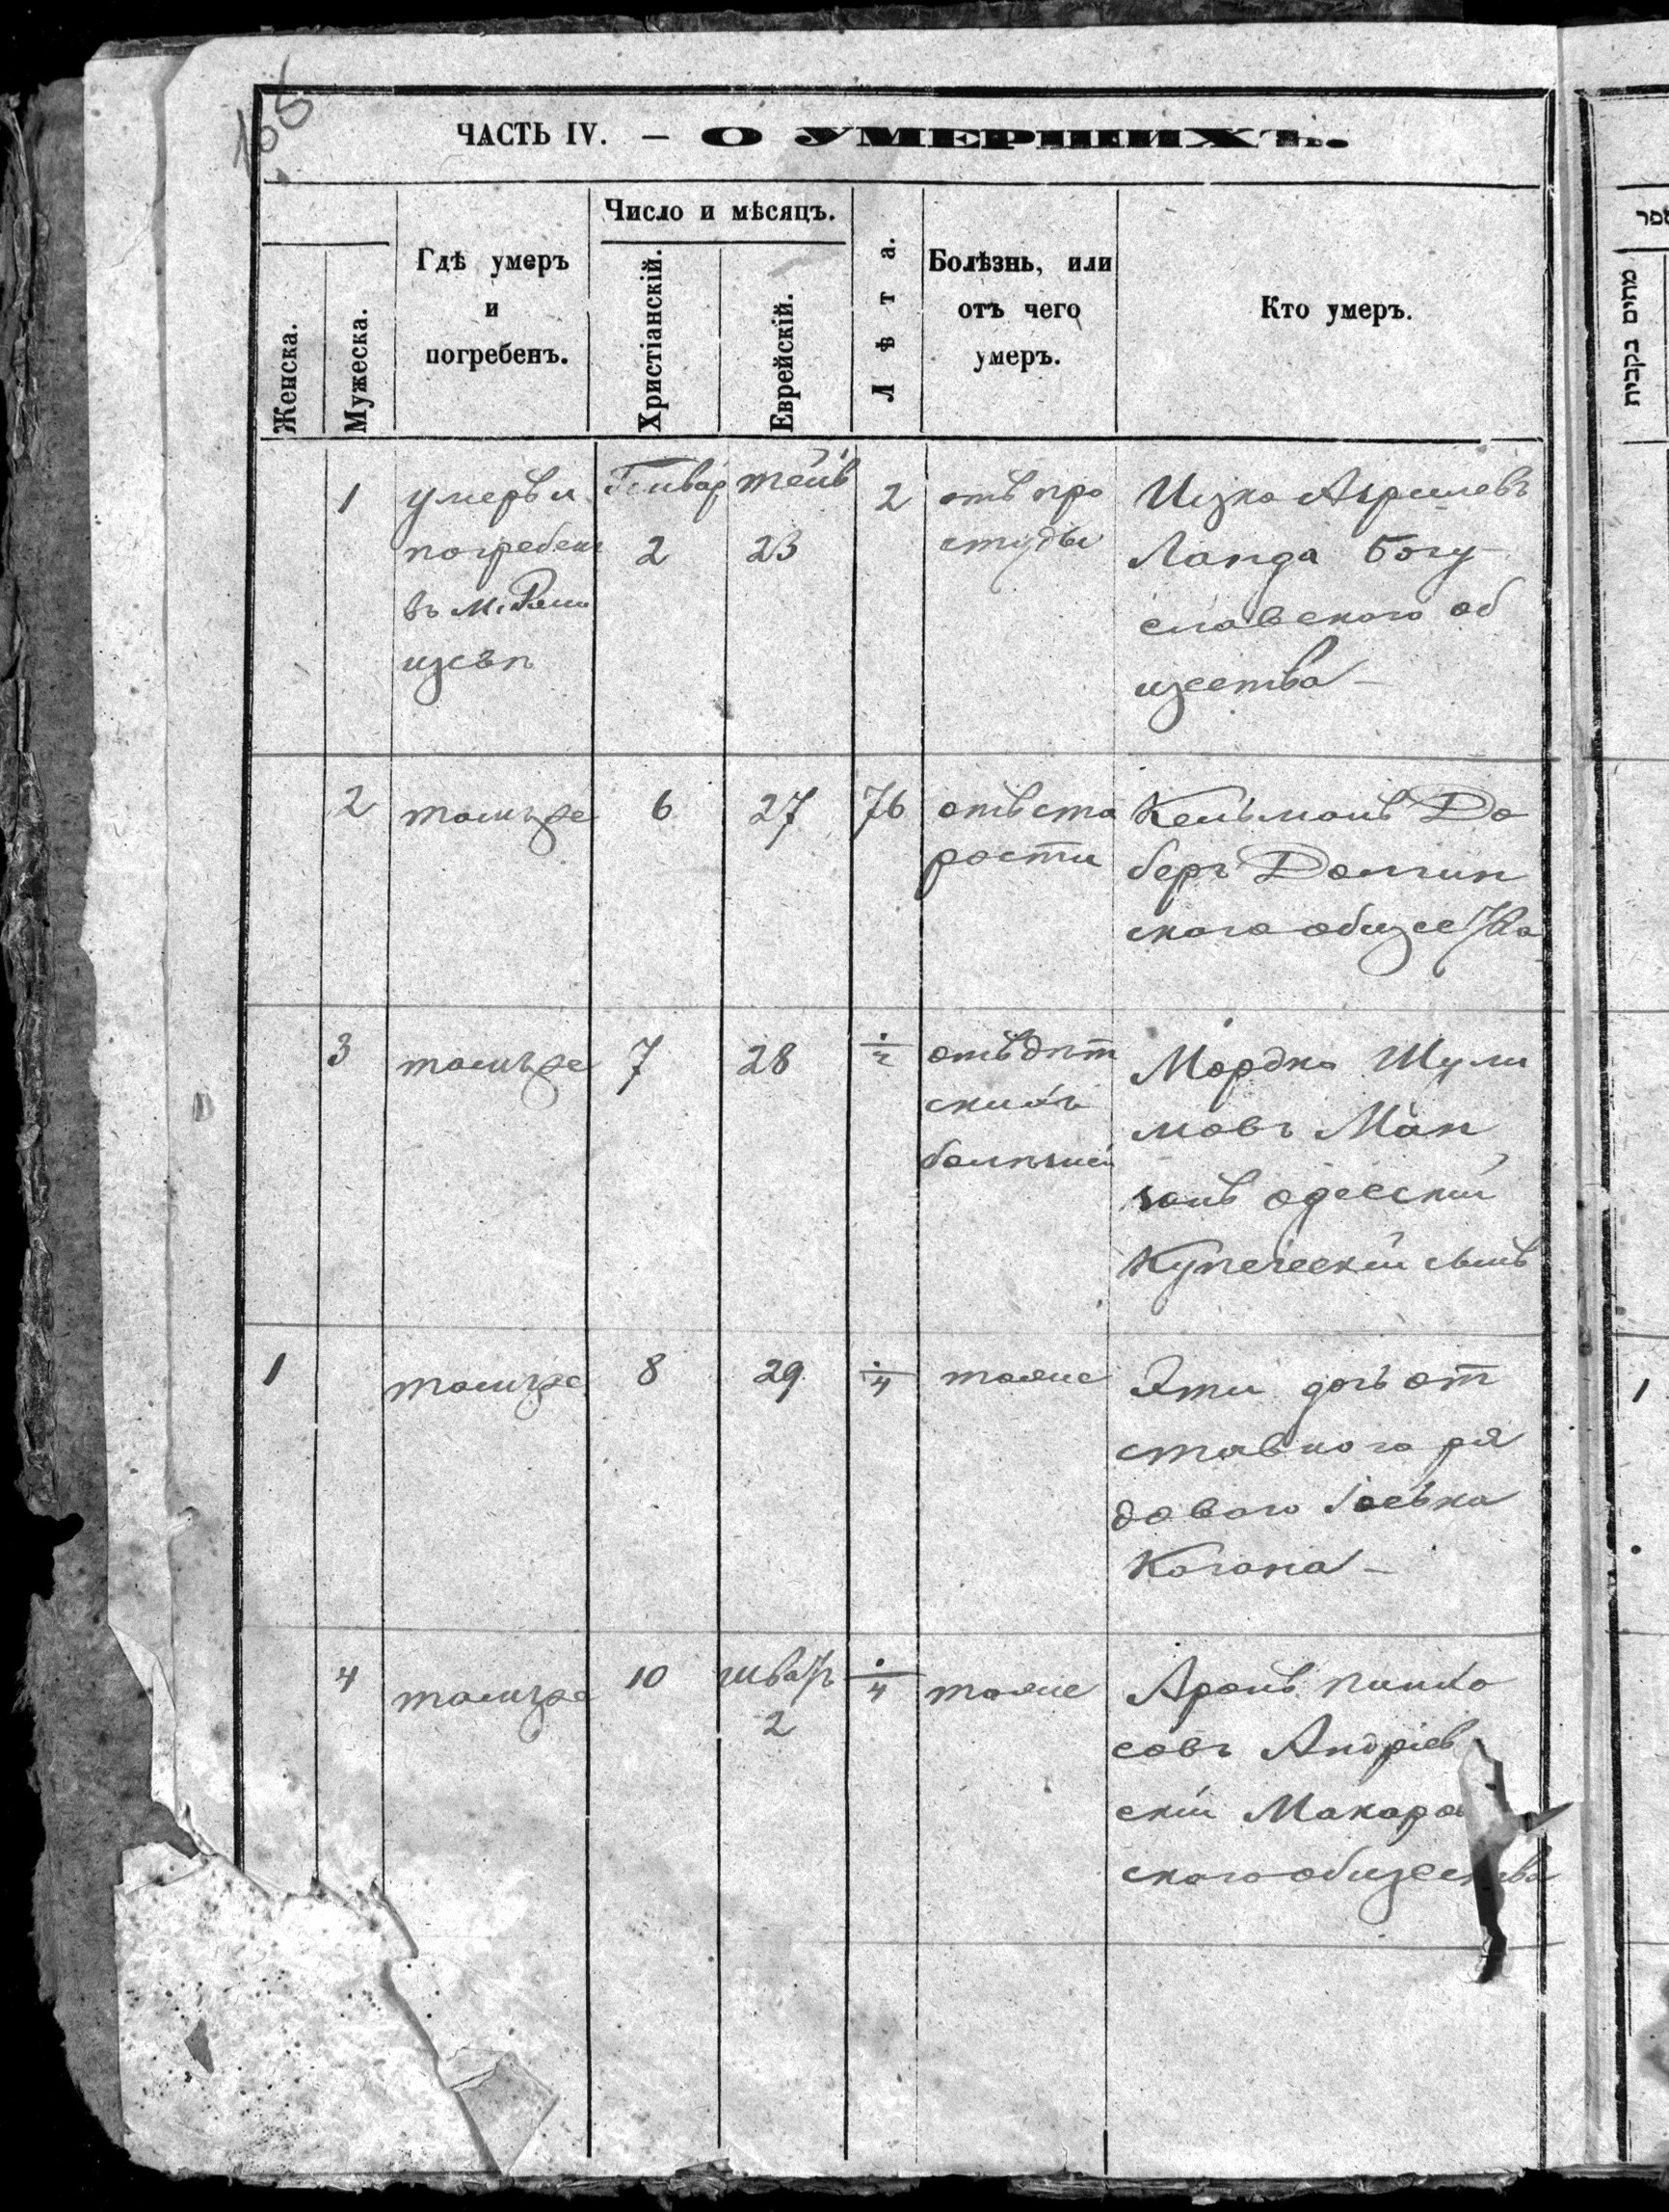 165
ЧАСТЬ IV. — О УМЕРШИХЪ.
Женска.
Мужеска.
Гдѣ умеръ
и
погребенъ.
Число и мѣсяцъ.
Христіанскій.
Еврейскій.
Лѣта.
Болѣзнь, или
отъ чего
умеръ.
Кто умеръ.
1
умеръ и
погребенъ
въ м.
Генвар
2
23
2
отъ про
студы
Ицко
Ланда Богу
славского об
щества
2
тамъже
6
27
76
отъ ста
рости
Кельманъ До
беръ
ского общества
3
тамъже
7
28
отъ дѣт
скихъ
Мордко Шули
мовъ
одесскій
Купеческій сынъ
1
тамъже
8
29
4
тоже
Эти дочь от
ставного ря
дового Іоська
Когана
4
тамъже
10
шватъ
2
4
тоже
Аронъ Пинхо
совъ Андріев
скій Макаро
ского общества
ספר
מתים נקבות
1